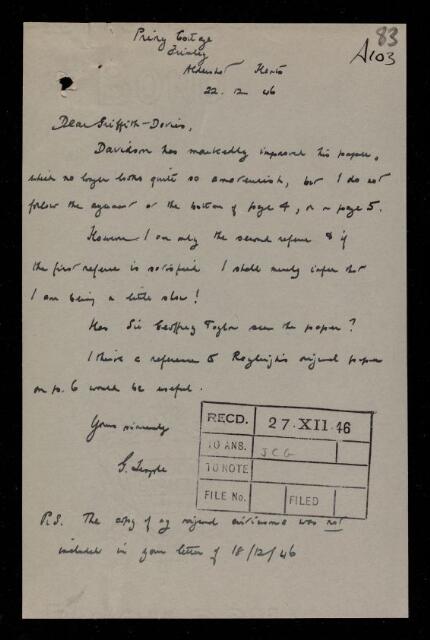 83
A103
Priory Cottage
Frimley
Aldershot Hants
22.12.46
Dear Griffith-Davies,
Davidson has markedly improved his paper,
which no longer looks quite so amateurish, but I do not
follow the argument at the bottom of page 4, or on page 5.
However I am only the second referee & if
the first referee is satisfied I shall merely infer that
I am being a little slow!
Has Sir Geoffrey Taylor seen the paper?
I think a reference to Rayleigh's original paper
on p. 6 would be useful.
Yours sincerely
G. Temple
RECD. 27·XII·46
TO ANS. JCG
TO NOTE
FILE No. FILED
P.S. The copy of my original criticisms was not
included in your letter of 18/12/46